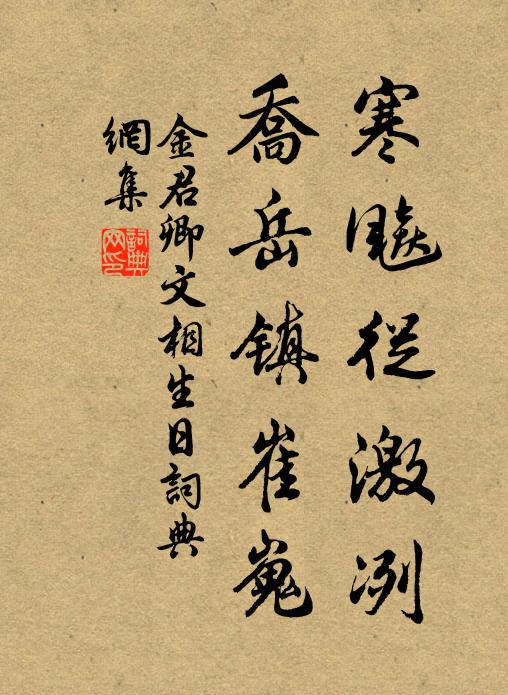 寒飈從激冽
喬岳镇崔嵬
金君卿文相生日詞典
網集
詞典
网印